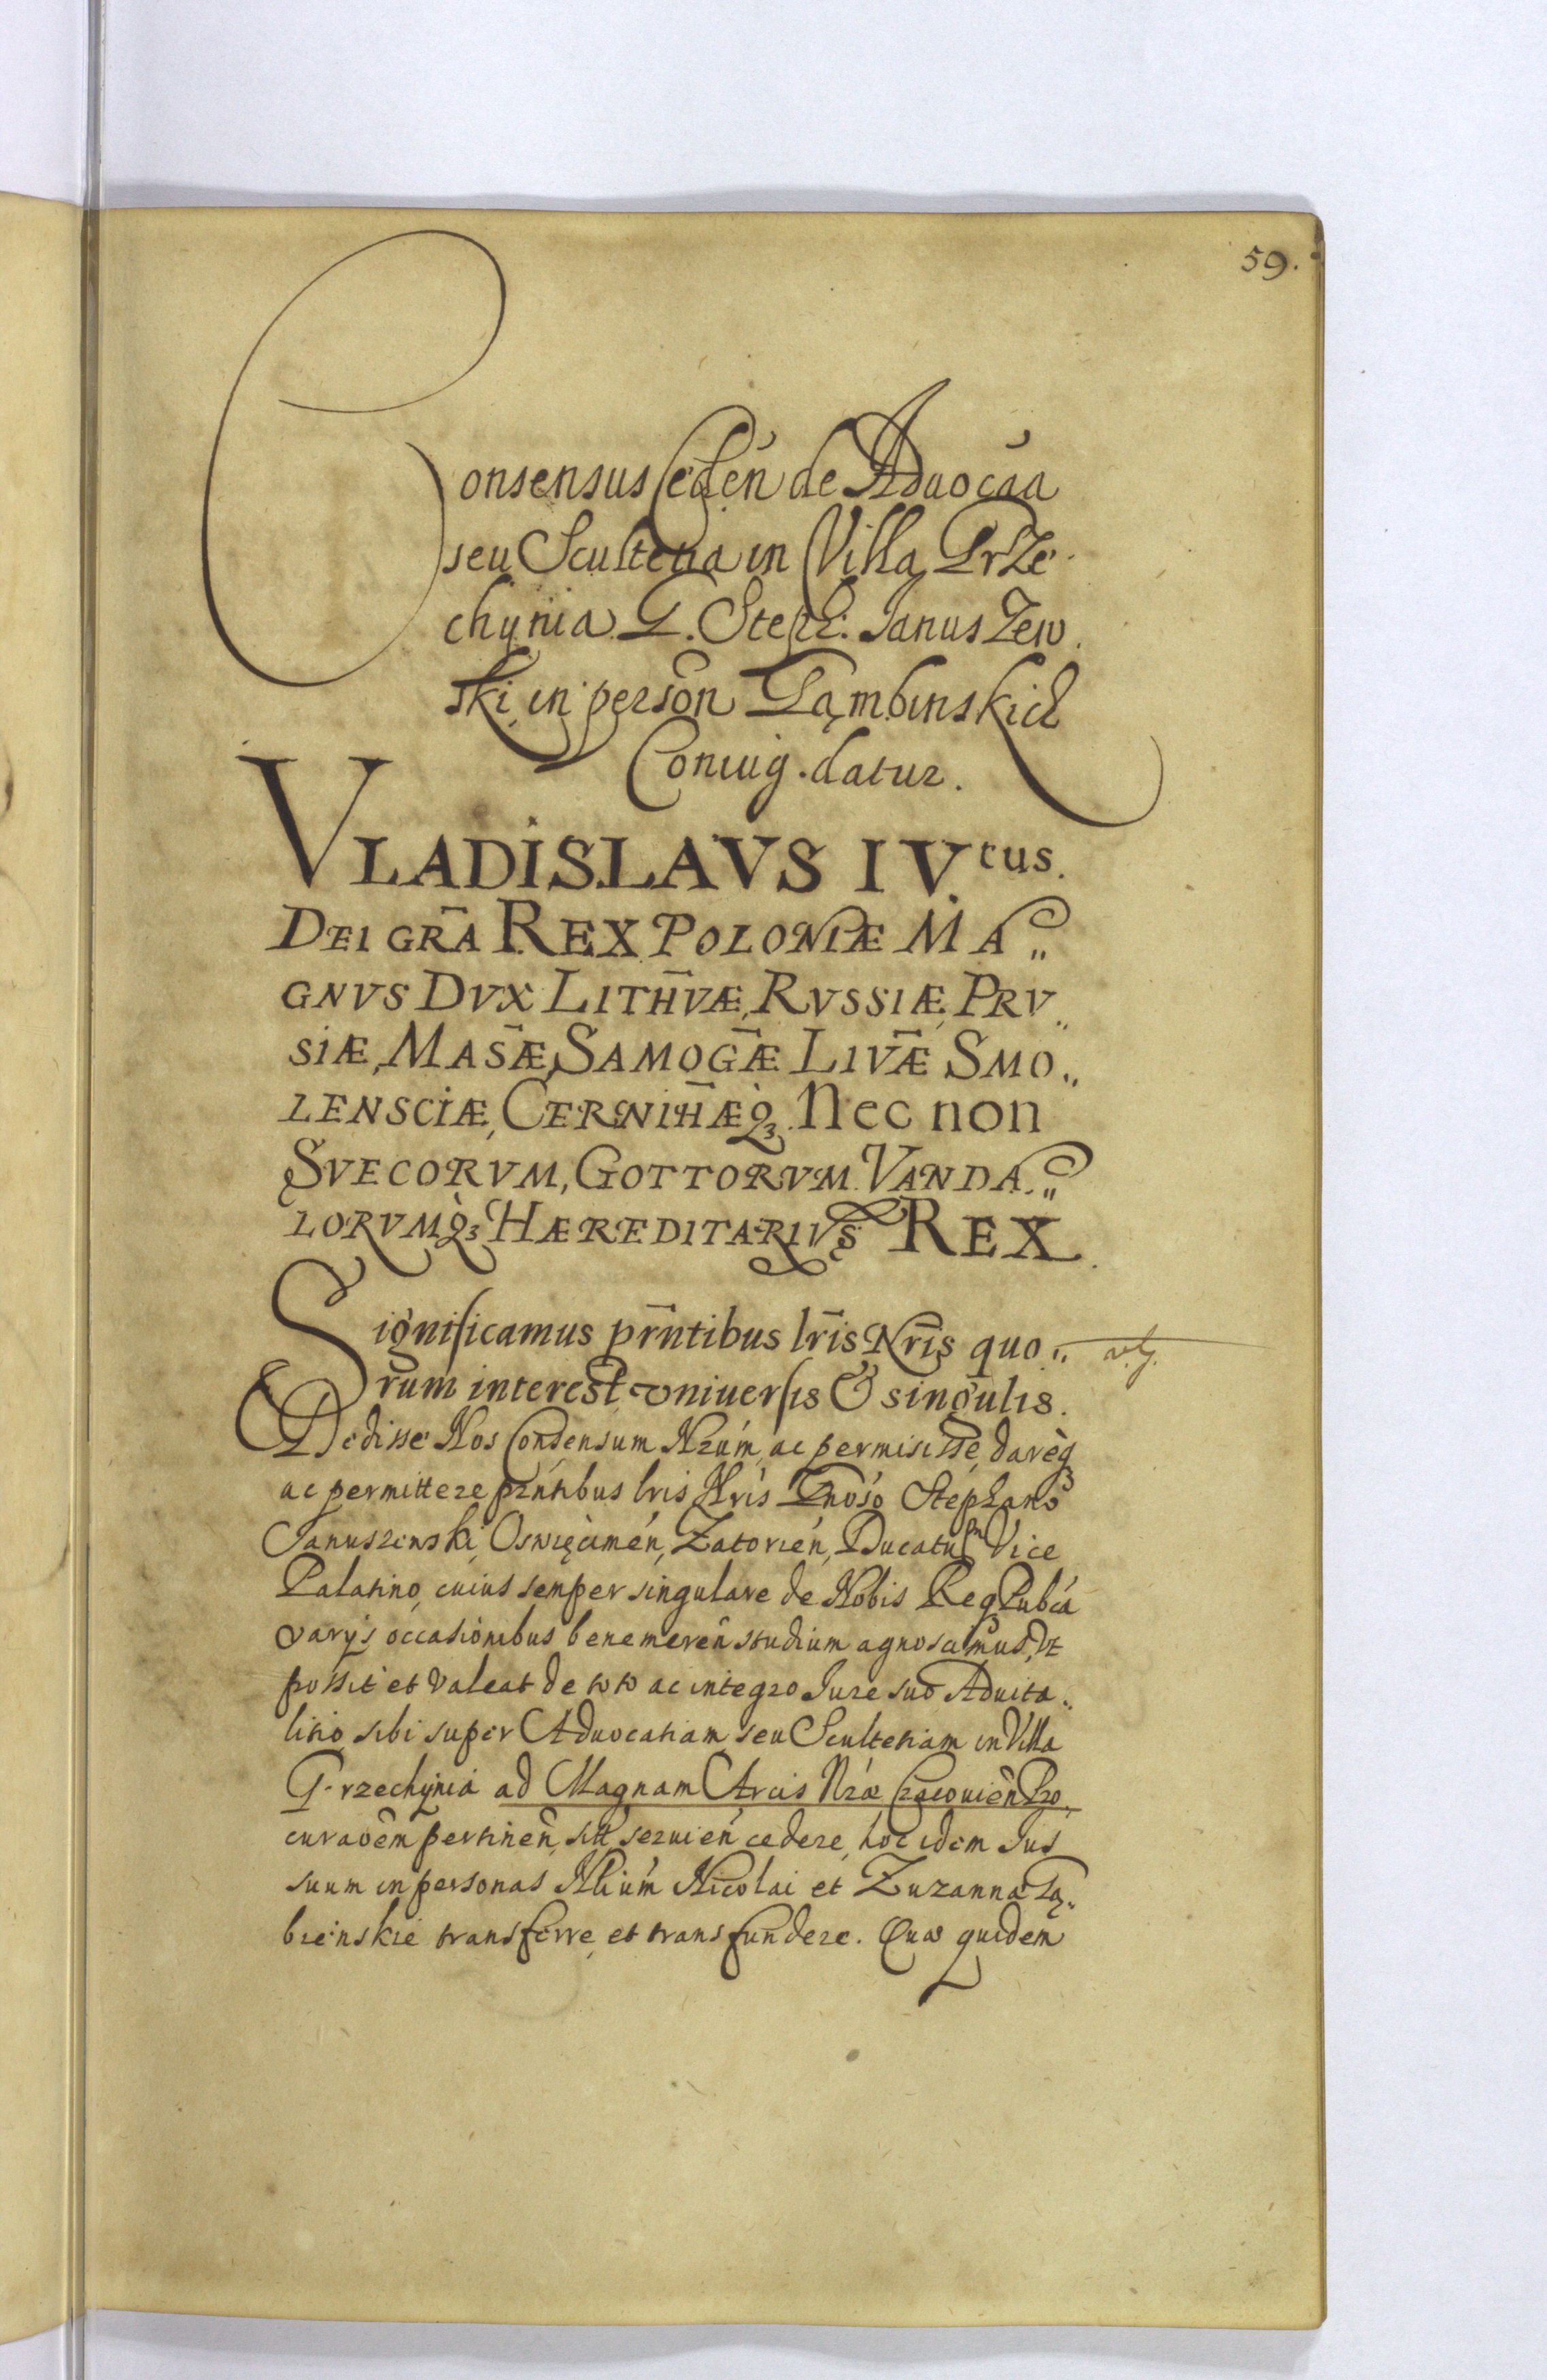 59.
Consensus Cedén de Aduocáa
seu Scultetia in Villa PrZe
chynia G. Steph: Janus Zew
ski in persōn Gąmbinskich
Coniug. datur.
VLADISLAVS IV.tus.
DEI GRĀ REX POLONIÆ MA„
GNVS DVX LITH̄VÆ, RVSSIÆ, PRV„
SIÆ, MAS̄Æ, SAMOḠÆ LIV̄Æ SMO„
LENSCIÆ, CERNIH̄ÆQ3. Nec non
SVECORVM, GOTTORVM VANDA„
LORVMQ3 HÆREDITARIVS REX.
Significamus pr̄ntibus lr̄is Nr̄is quo„
rum interest vniuersis & singulis.
Dedisse Nos Consensum Nrúm, ac permisisse, darèq3
ac permittere prńtibus lris Nrís Gnoso Stephano
Januszewski, Oswięcimén, Zatorién, Ducatu Vice
Palatino, cuius semper singulare de Nobis Reqꝫ Pubcá
varijs occasionibus benemerén studium agnoscimus, Vt
possit et valeat de toto ac integro Jure suo Aduita„
litio sibi super Aduocatiam seu Scultetiam in Villa
Grzechynia ad Magnam Arcis Nræ Cracouień Pro„
curaoem pertineń, sitt seruień cedere, hoc idem Jus
suum in personas Nlium Nicolai et Zuzanna Gą„
bienskie transferre, et transfundere. Quæ quidem